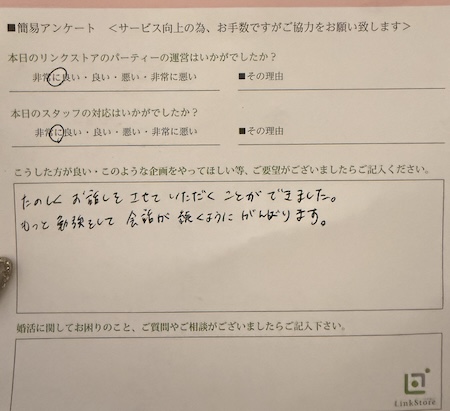 ■簡易アンケート ＜サービス向上の為、お手数ですがご協力をお願い致します＞
本日のリンクストアのパーティーの運営はいかがでしたか？
非常に良い・良い・悪い・非常に悪い ■その理由
本日のスタッフの対応はいかがでしたか？
非常に良い・良い・悪い・非常に悪い ■その理由
こうした方が良い・このような企画をやってほしい等、ご要望がございましたらご記入ください。
たのしくお話しをさせていただくことができました。
もっと勉強をして会話が続くようにがんばります。
婚活に関してお困りのこと、ご質問やご相談がございましたらご記入下さい。
LinkStore